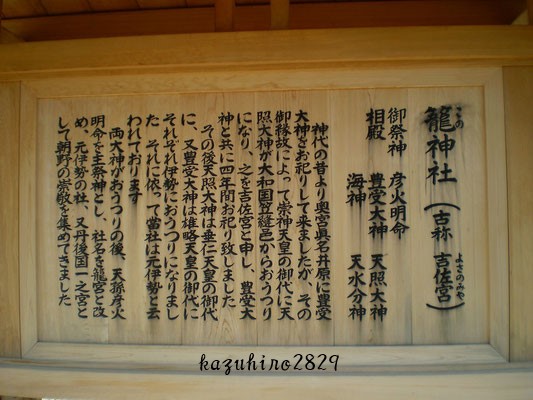 籠神社（古称 吉佐宮）
この
よさのみや
御祭神 彦火明命
相殿 豊受大神 天照大神
海神 天水分神
神代の昔より奥宮眞名井原に豊受
大神をお祀りして来ましたが、その
御縁故によって崇神天皇の御代に天
照大神が大和国笠縫邑からおうつり
になり、之を吉佐宮と申し、豊受大
神と共に四年間お祀り致しました
その後天照大神は垂仁天皇の御代
に、又豊受大神は雄略天皇の御代に
それぞれ伊勢におうつりになりまし
た それに依って當社は元伊勢と云
われております
両大神がおうつりの後、天孫彦火
明命を主祭神とし、社名を籠宮と改
め、元伊勢の社、又丹後国一之宮と
して朝野の崇敬を集めてきました
kazuhiro2829